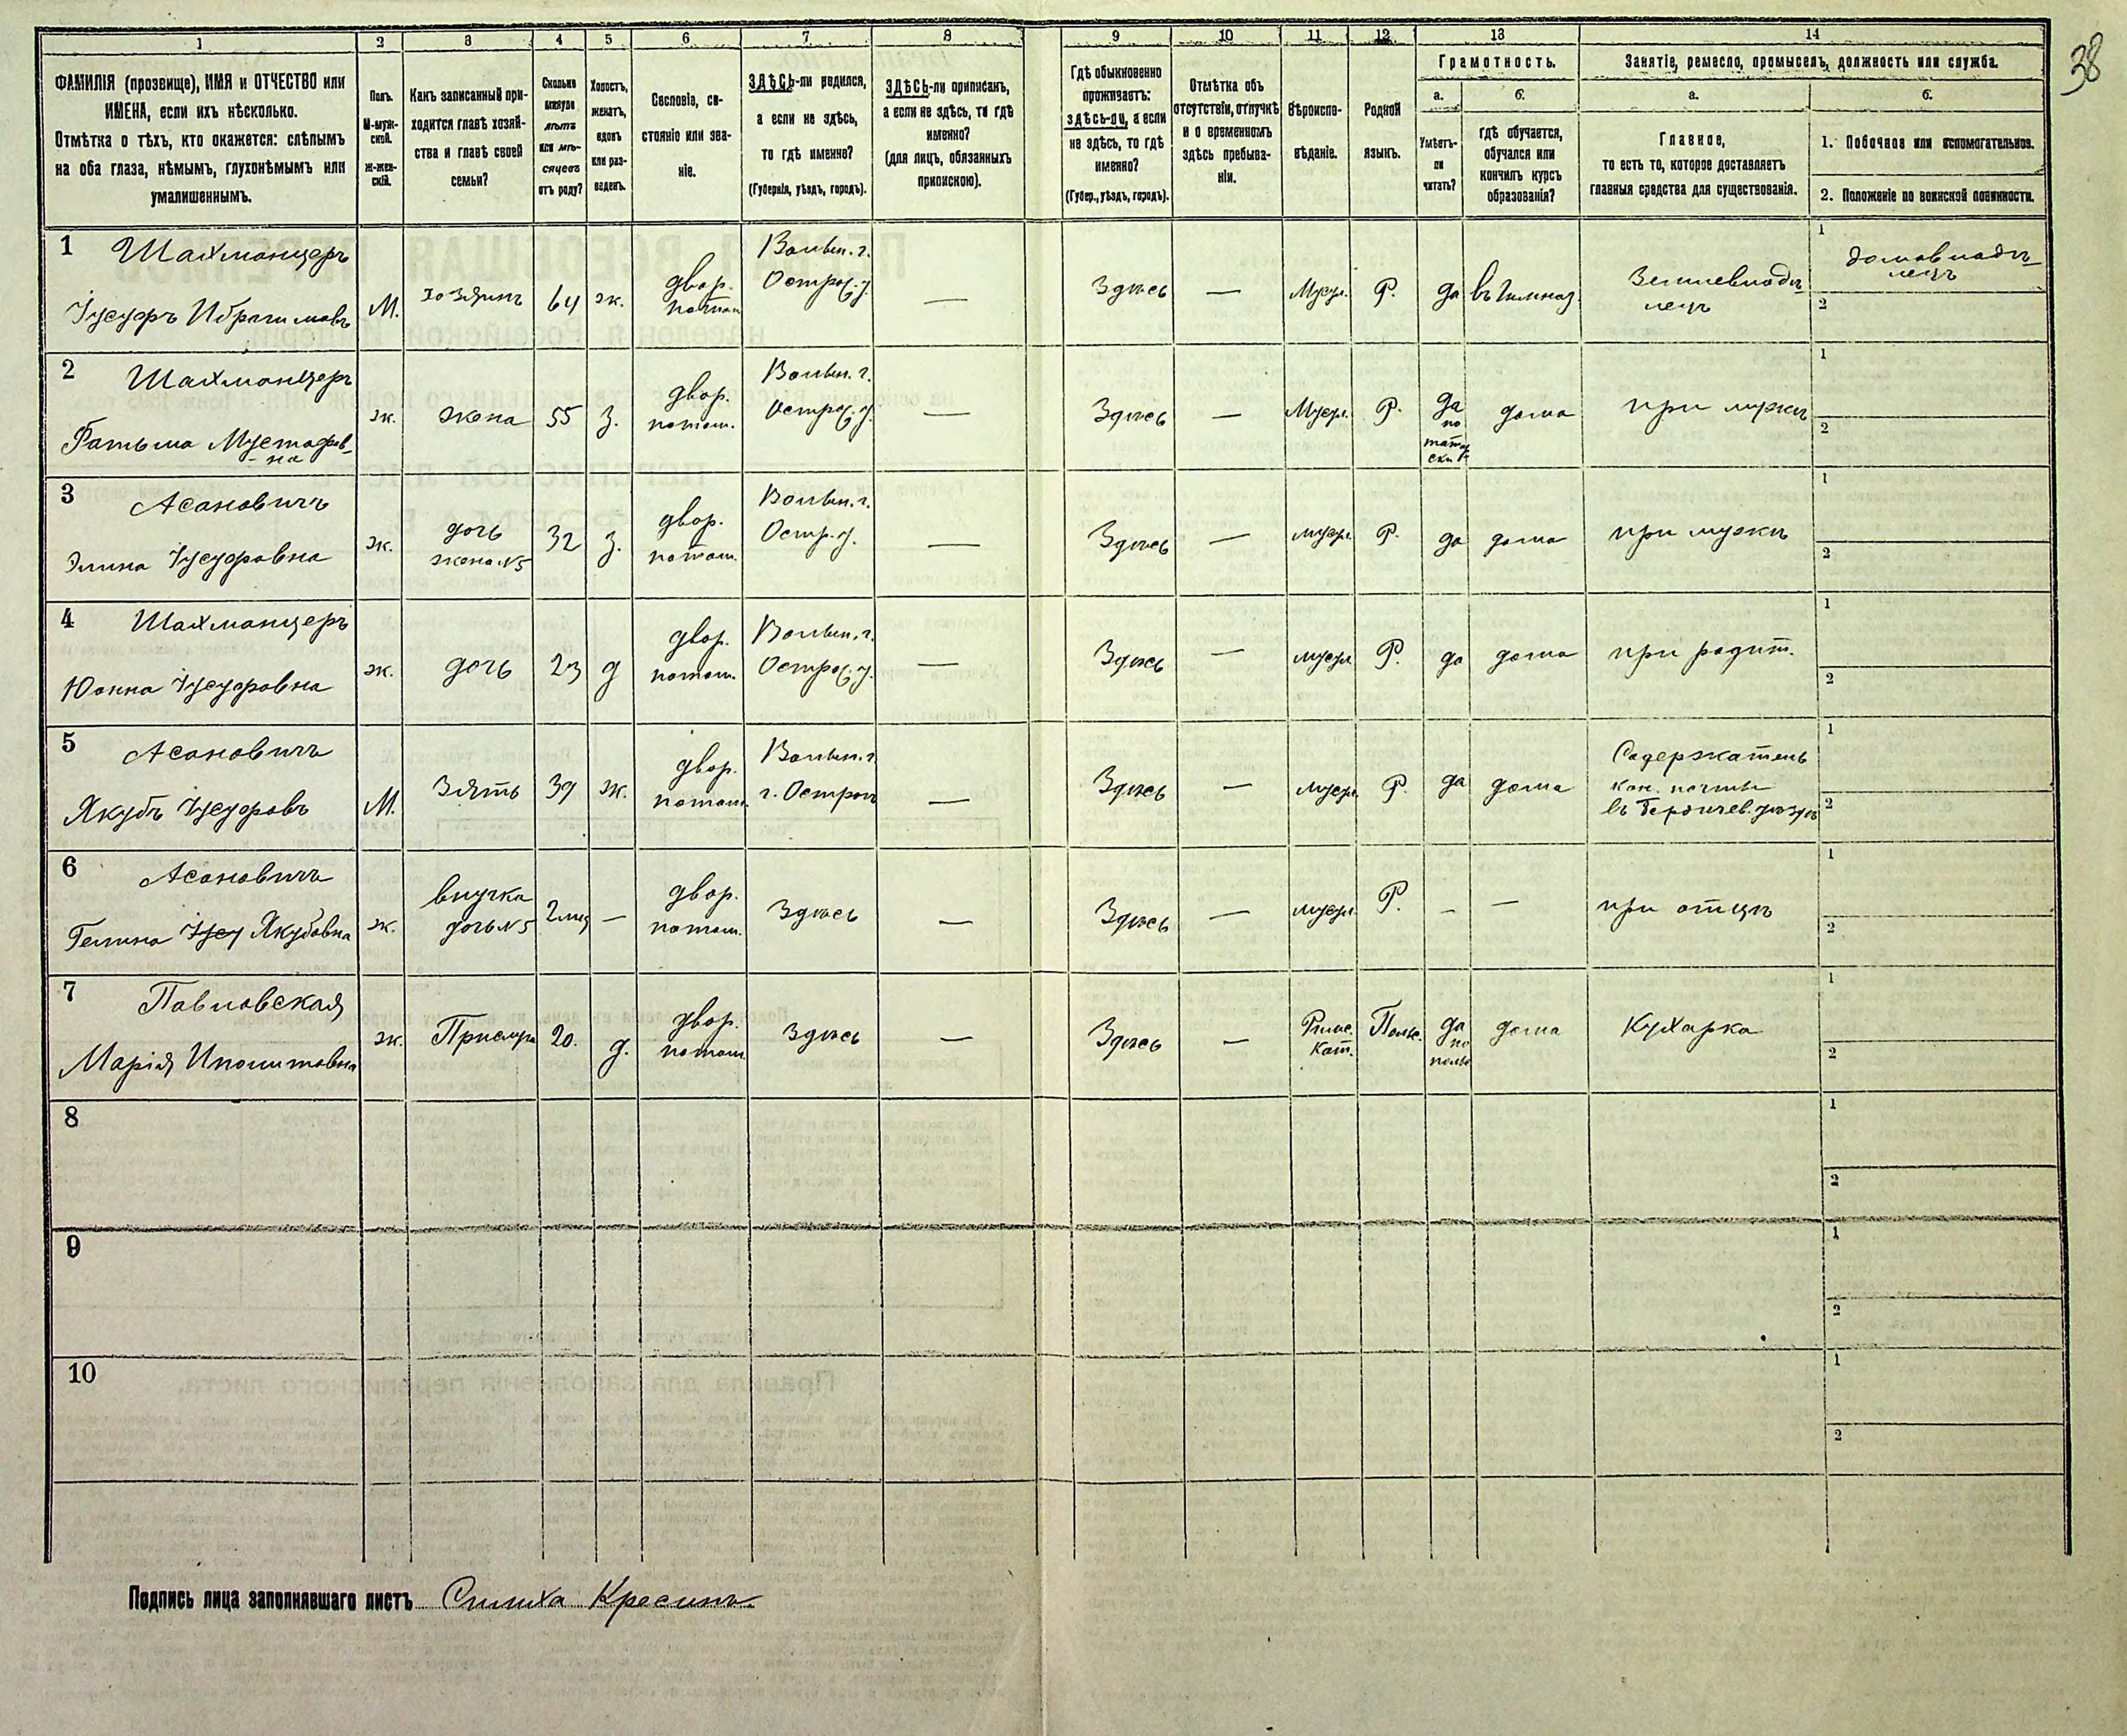 38
1 2 3 4 5 6 7 8 9 10 11 12 13 14
ФАМИЛІЯ (прозвище), ИМЯ и ОТЧЕСТВО или
ИМЕНА, если ихъ нѣсколько.
Отмѣтка о тѣхъ, кто окажется: слѣпымъ
на оба глаза, нѣмымъ, глухонѣмымъ или
умалишеннымъ.
Полъ.
М-муж-
ской.
Ж-жен-
скій.
Какъ записанный при-
ходится главѣ хозяй-
ства и главѣ своей
семьи?
Сколько
минуло
лѣтъ
или мѣ-
сяцевъ
отъ роду?
Холостъ,
женатъ,
вдовъ
или раз-
веденъ.
Сословіе, со-
стояніе или зва-
ніе.
ЗДѢСЬ-ли родился,
а если не здѣсь,
то гдѣ именно?
(Губернія, уѣздъ, городъ).
ЗДѢСЬ-ли приписанъ,
а если не здѣсь, то гдѣ
именно?
(для лицъ, обязанныхъ
припискою).
Гдѣ обыкновенно
проживаетъ:
здѣсь-ли, а если
не здѣсь, то гдѣ
именно?
(Губер., уѣздъ, городъ).
Отмѣтка объ
отсутствіи, отлучкѣ
и о временномъ
здѣсь пребыва-
ніи.
Вѣроиспо-
вѣданіе.
Родной
языкъ.
Грамотность.
а.
Умѣетъ-
ли
читать?
б.
гдѣ обучается,
обучался или
кончилъ курсъ
образованія?
Занятіе, ремесло, промыселъ, должность или служба.
а.
Главное,
то есть то, которое доставляетъ
главныя средства для существованія.
б.
1. Побочное или вспомогательное.
2. Положеніе по воинской повинности.
1 Шахманцеръ
Іусуфъ Ибрагимовъ
М.
хозяинъ
64
ж.
двор.
потом.
Волын. г.
Острож. у.
—
Здѣсь
—
Мусул.
Р.
да
въ Гимназ.
Землевладѣ-
лецъ
1
домовладѣ-
лецъ
2
2 Шахманцеръ
Фатьма Мустафов-
на
ж.
жена
55
з.
двор.
потом.
Волын. г.
Острож. у.
—
Здѣсь
—
Мусул.
Р.
да
по
татар-
ски
дома
при мужѣ
1
2
3 Асановичъ
Элина Іусуфовна
ж.
дочь
жена №5
32
з.
двор.
потом.
Волын. г.
Остр. у.
—
Здѣсь
—
мусул.
Р.
да
дома
при мужѣ
1
2
4 Шахманцеръ
Іусуфовна
ж.
дочь
23
д
двор.
потом.
Волын. г.
Острож. у.
—
Здѣсь
—
мусул.
Р.
да
дома
при родит.
1
2
5 Асановичъ
Якубъ Іусуфовъ
М.
Зять
39
ж.
двор.
потом.
Волын. г.
г. Острогъ
—
Здѣсь
—
мусул.
Р.
да
дома
Содержатель
кон. почты
въ Бердичев. уѣздѣ
1
2
6 Асановичъ
Гелина Якубовна
ж.
внучка
дочь №5
2 мѣс
—
двор.
потом.
Здѣсь
—
Здѣсь
—
мусул.
Р.
—
—
при отцѣ
1
2
7 Павловская
Марія Иполитовна
ж.
Прислуга
20.
д.
двор.
потом.
Здѣсь
—
Здѣсь
—
Римс.
Кат.
Польс.
да
по
польс
дома
Кухарка
1
2
8
1
2
9
1
2
10
1
2
Подпись лица заполнявшаго листъ